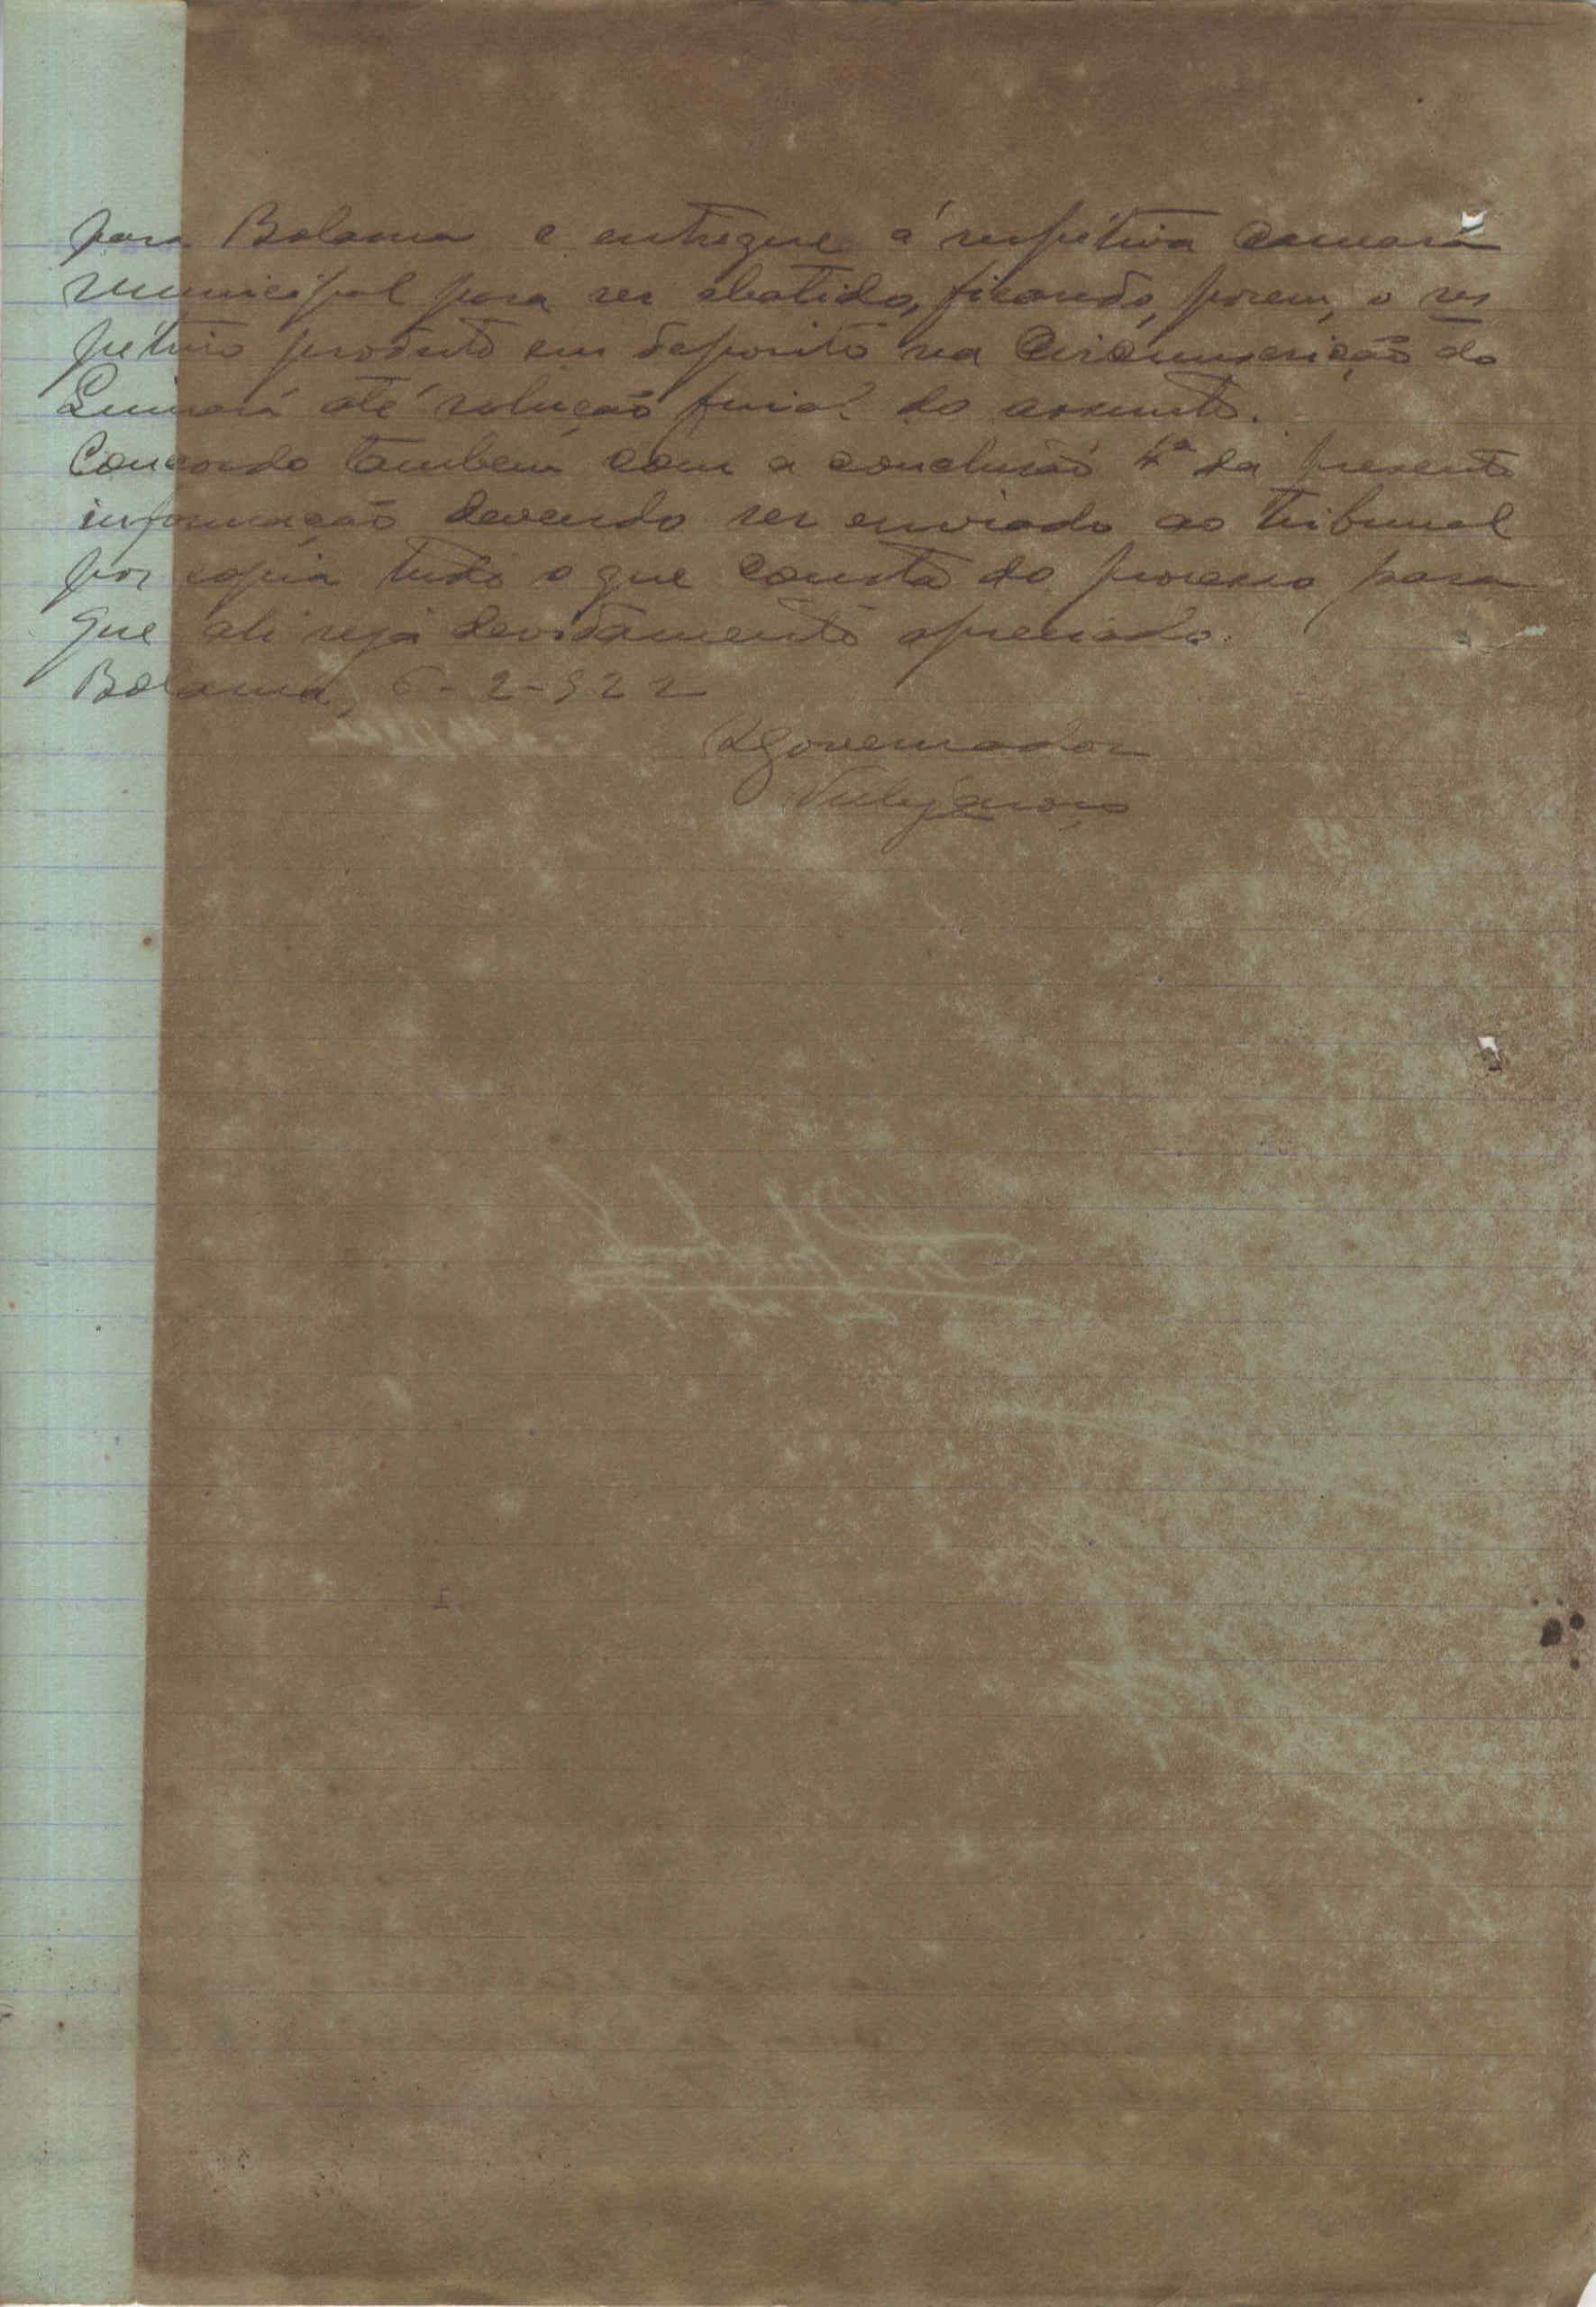 para Bolama e entregue á respétiva Camara
Municipal para ser abatido, ficando, porem, o res
pétivo produto em deposito na Circunscrição do
até solução final do assunto.
Concordo tambem com a conclusão 4ª da presente
informação devendo ser enviado ao Tribunal
por copia tudo o que consta do processo para
que ali seja devidamente apreciado.
Bolama, 6-2-922
O Governador